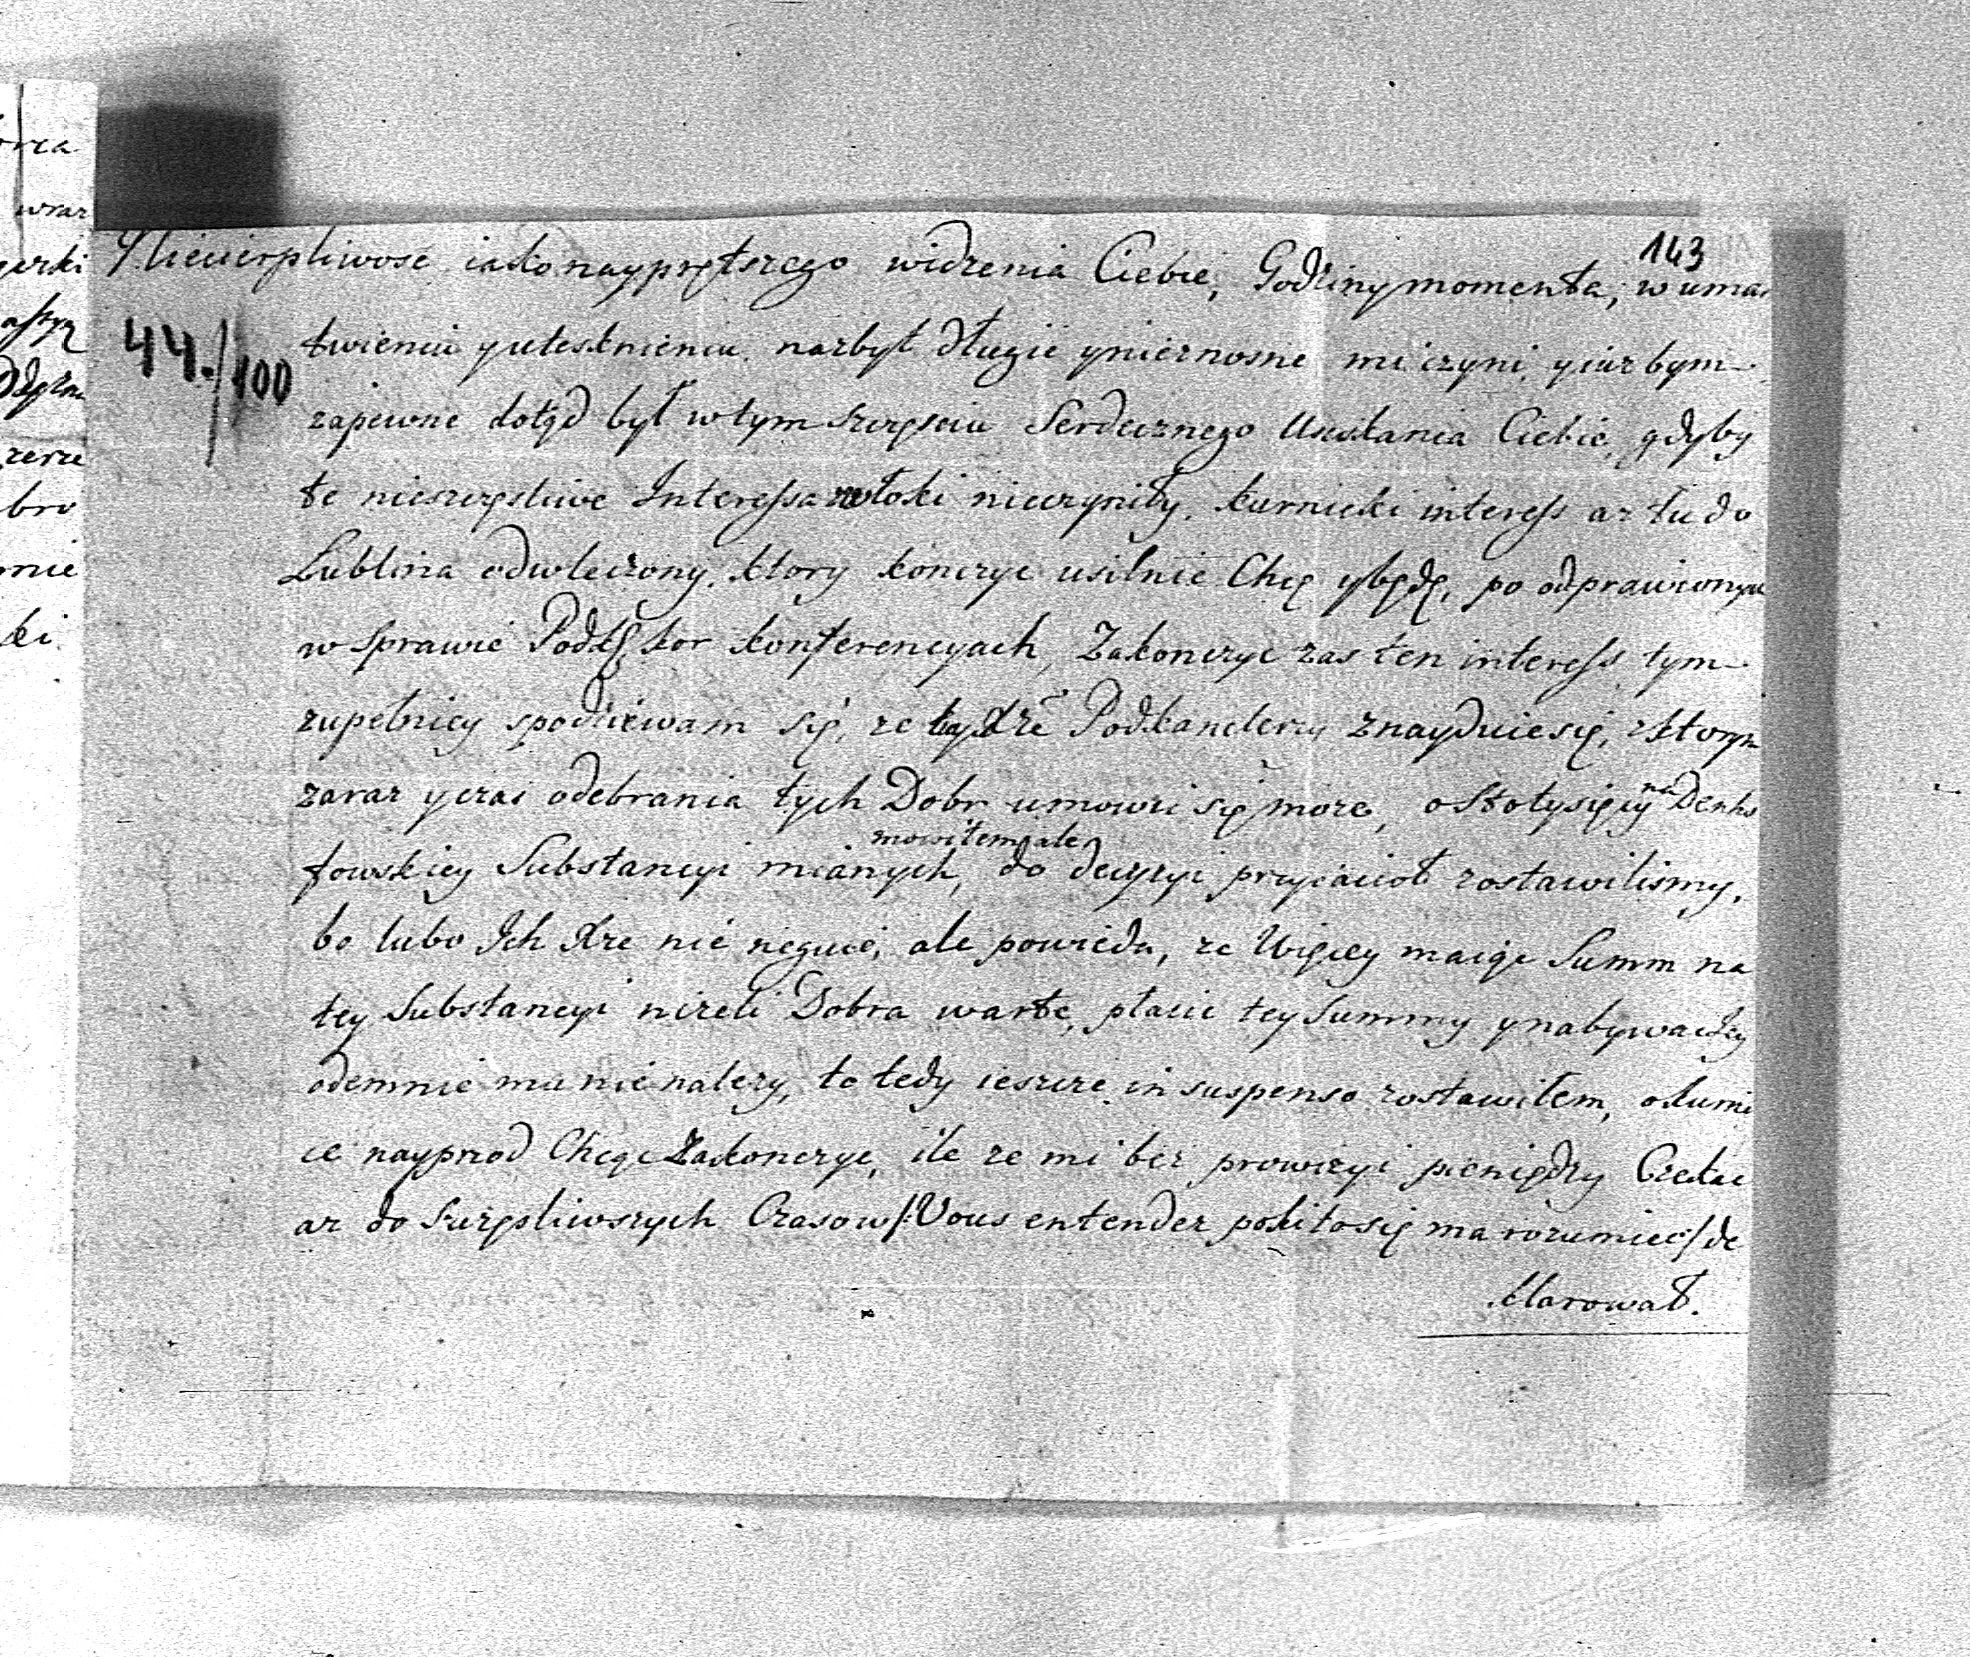 143
Niecierpliwosc iako nayprętszego widzenia Ciebie, Godziny momenta, w umar
44./100
twieniu y utesknieniu nazbyt długie y nieznosne mi czyni, y iuz bym
zapewne dotąd był w tym szczęsciu Serdecznego Uscisłania Ciebie, gdyby
te nieszczęsliwe Interessa zwłoki nieczyniły. kurnicki interess az tu do
Lublina odwleczony, ktory konczyc usilnie Chcę y będę, po odprawionych
w sprawie Podks kor konferencyach, Zakonczyc zas ten interess tym
zupełniey spodziewam się, ze tu Xże Podkanclerzy znayduie się, z ktorym
zaraz y czas odebrania tych Dobr umowic się może, o Sto tysięcy na Denho
mowiłem ale
fowskiey Substancyi mianych, do decyzyi przyiacioł zostawilismy,
bo lubo Ich Xze nie neguie, ale powieda, ze Więcey maiąc Summ na
tey Substancyi nizeli Dobra warte, płacic tey Summy y nabywac Jey
odemnie mu nie nalezy, to tedy ieszcze in suspenso zostawiłem, o kurni
ce nayprzod Chcąc Zakonczyc, ile ze mi bez prowizyi pieniędzy Czekac
az do szczęsliwszych Czasow /:Vous entendez poki to się ma rozumiec:/ de
klarował.
orca
wraz
zerze
bro
mie
ki